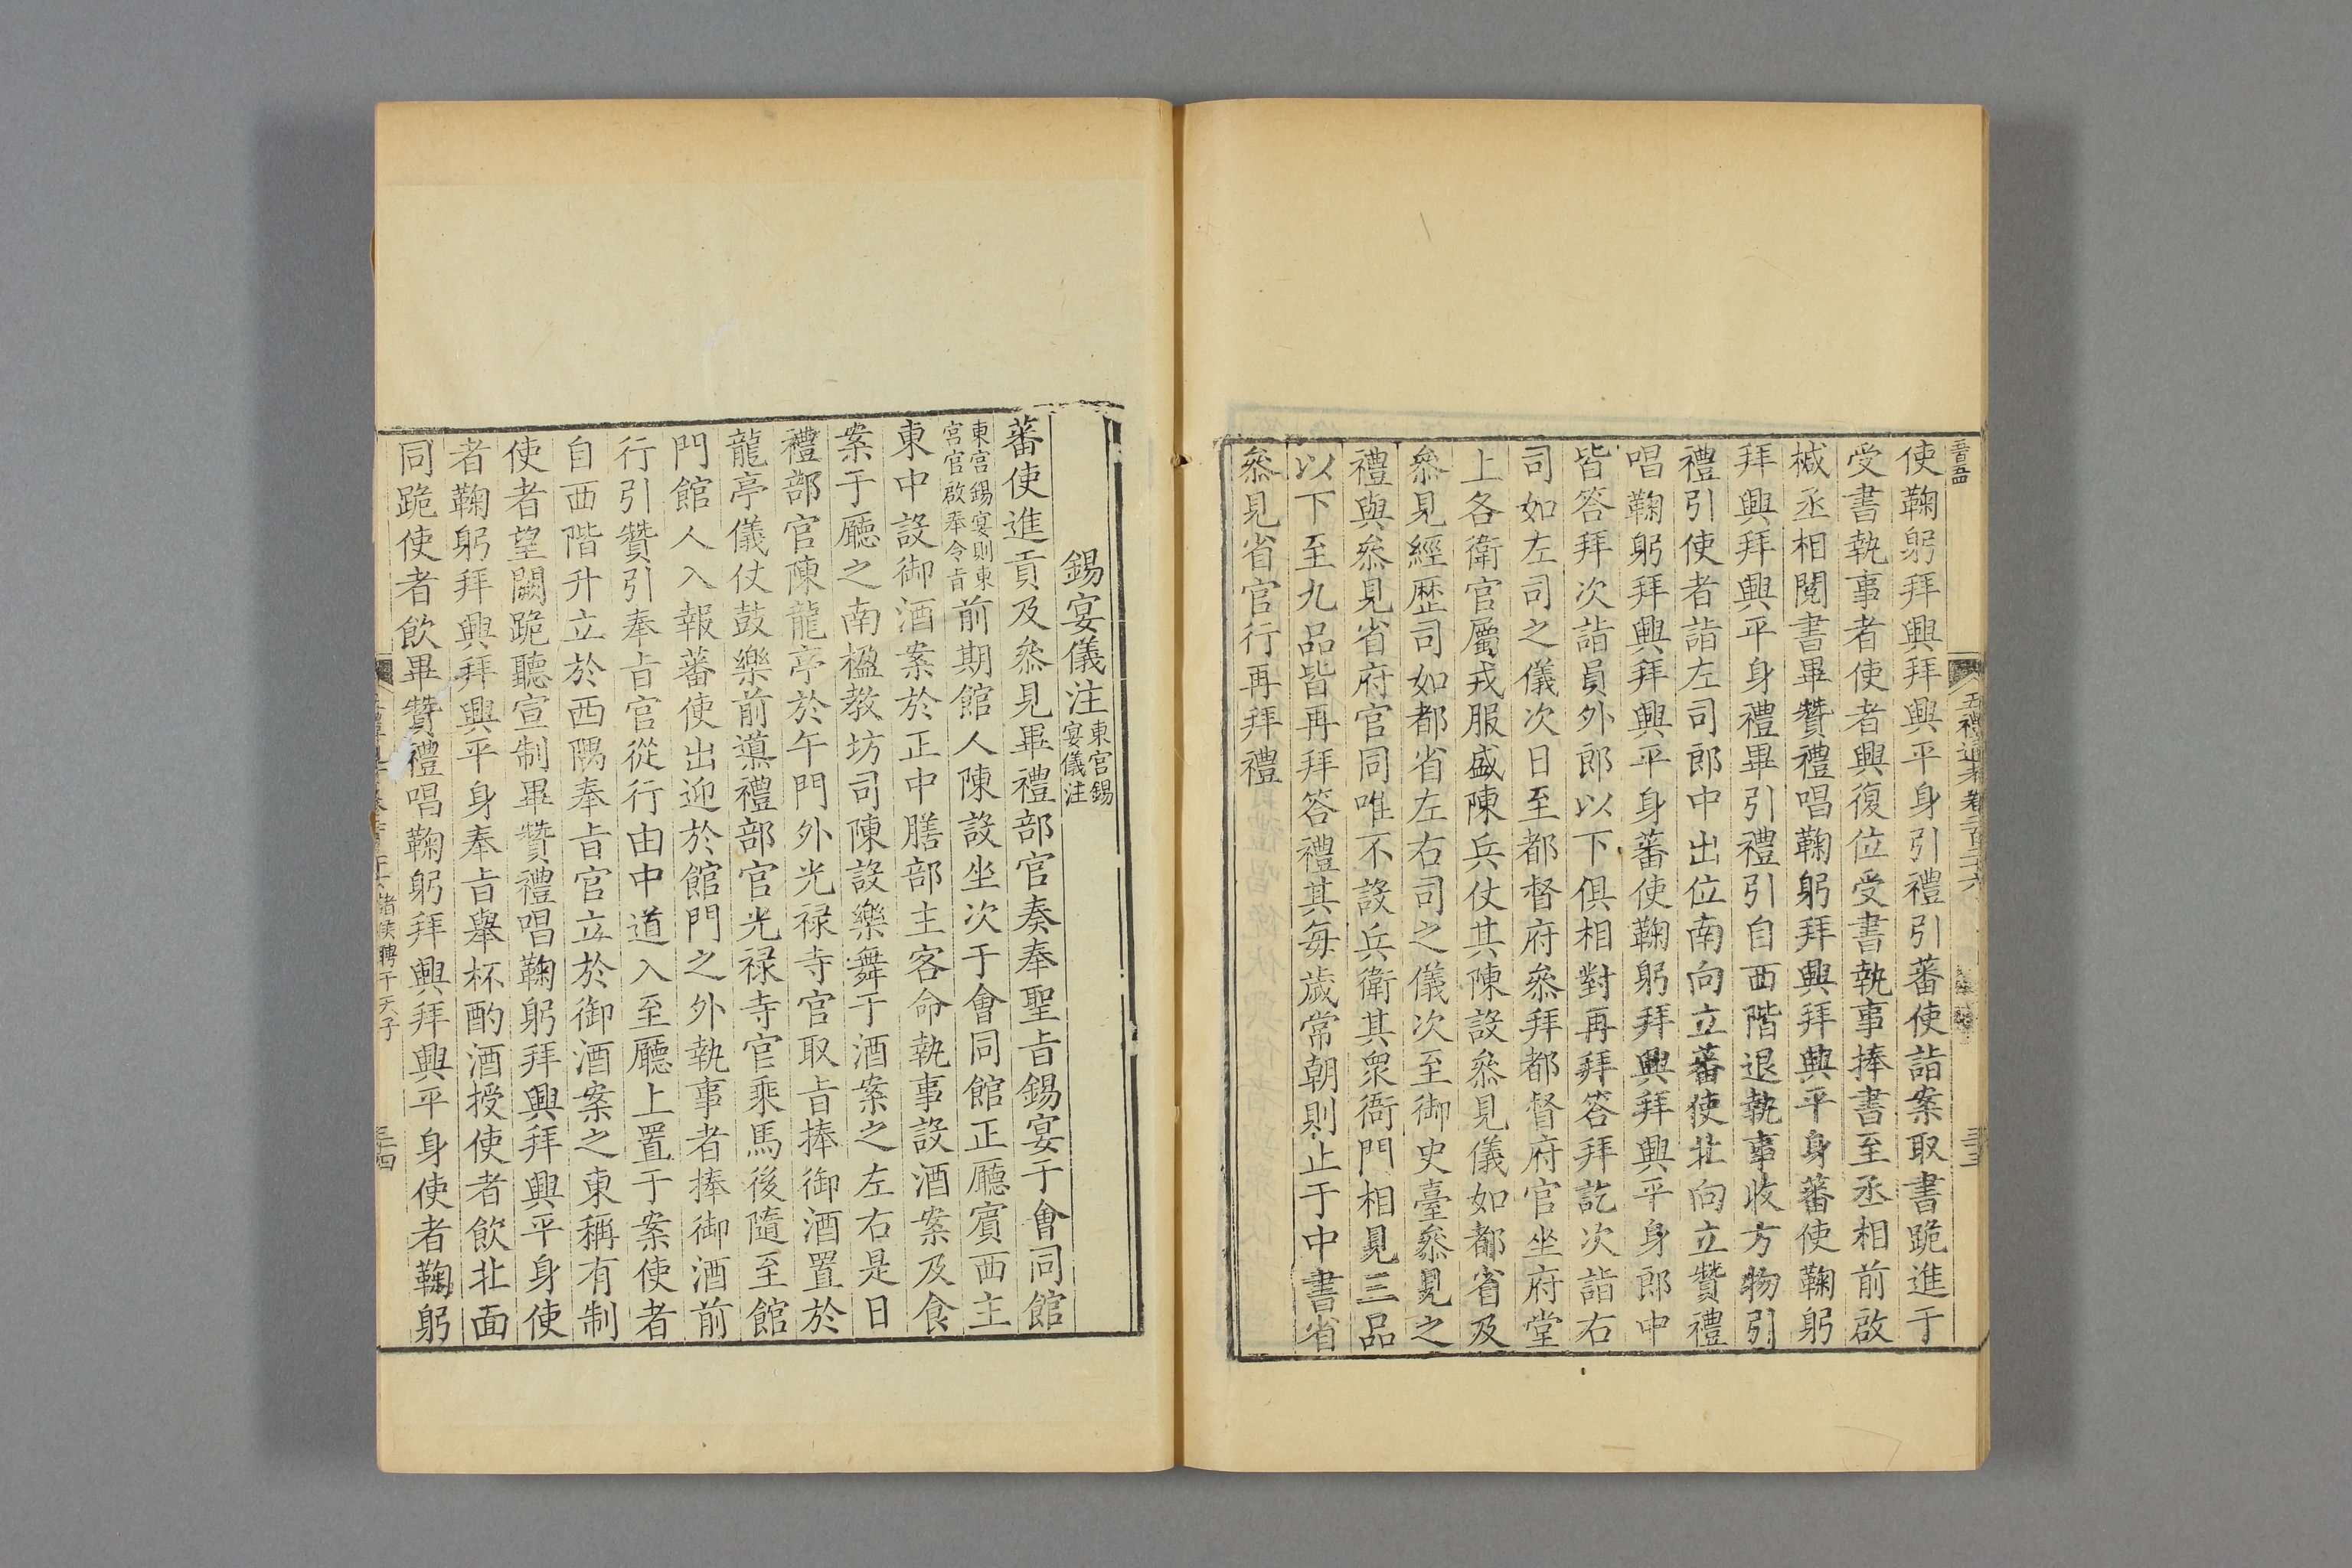 五禮通考卷二百二十六
使鞠躬拜興拜興平身引禮引蕃使詣案取書跪進于
受書執事者使者興復位受書執事捧書至丞相前啟
椷丞相閱書畢贊禮唱鞠躬拜興拜興平身蕃使鞠躬
拜興拜興平身禮畢引禮引自西階退執事收方物引
禮引使者詣左司郎中出位南向立蕃使北向立贊禮
唱鞠躬拜興拜興平身蕃使鞠躬拜興拜興平身郎中
皆答拜次詣員外郎以下俱相對再拜答拜訖次詣右
司如左司之儀次日至都督府叅拜都督府官坐府堂
上各衛官屬戎服盛陳兵仗其陳設叅見儀如都省及
叅見經歷司如都省左右司之儀次至御史臺叅見之
禮與叅見省府官同唯不設兵衛其衆衙門相見三品
以下至九品皆再拜答禮其每歲常朝則止于中書省
叅見省官行再拜禮
錫宴儀注東宫錫宴儀注
蕃使進貢及叅見畢禮部官奏奉聖旨錫宴于會同館
東宫錫宴則東宫官啟奉令旨前期館人陳設坐次于會同館正廳賓西主
東中設御酒案於正中膳部主客命執事設酒案及食
案于廳之南楹教坊司陳設樂舞于酒案之左右是日
禮部官陳龍亭於午門外光禄寺官取旨捧御酒置於
龍亭儀仗鼓樂前導禮部官光禄寺官乘馬後隨至館
門館人入報蕃使出迎於館門之外執事者捧御酒前
行引贊引奉旨官從行由中道入至廳上置于案使者
自西階升立於西隅奉旨官立於御酒案之東稱有制
使者望闕跪聽宣制畢贊禮唱鞠躬拜興拜興平身使
者鞠躬拜興拜興平身奉旨舉杯酌酒授使者飲北面
同跪使者飲畢贊禮唱鞠躬拜興拜興平身使者鞠躬
諸侯聘于天子
三十四